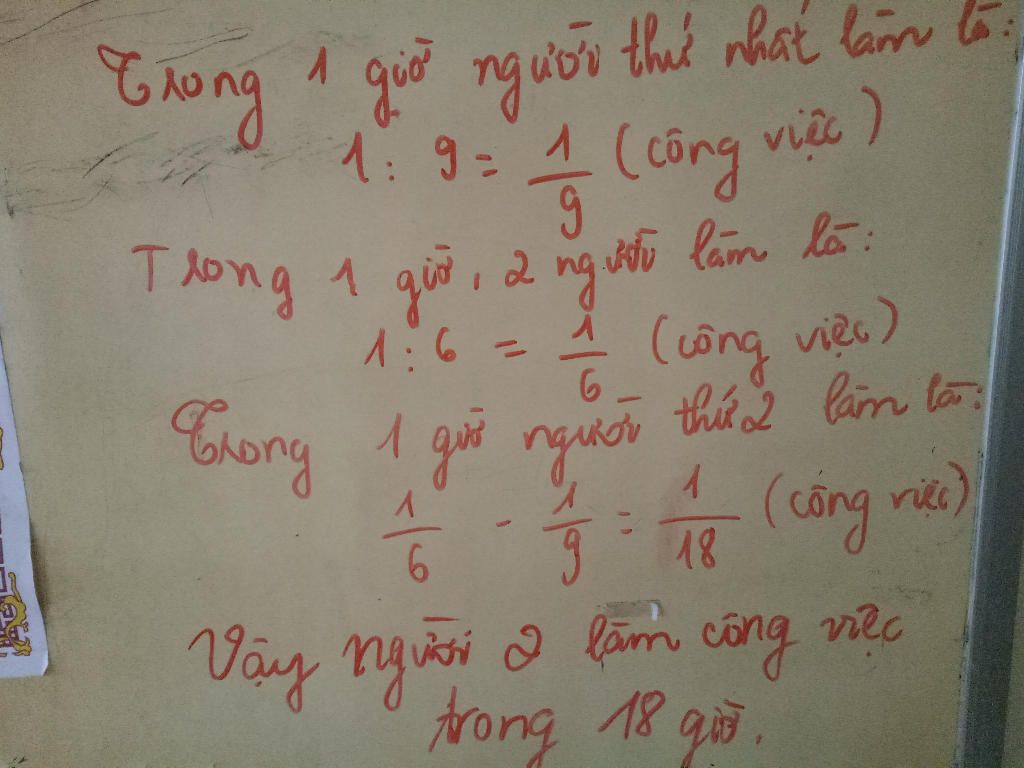 Trong 1 giờ người thứ nhất làm là:
1 : 9 = 1/9 (công việc)
Trong 1 giờ, 2 người làm là:
1 : 6 = 1/6 (công việc)
Trong 1 giờ người thứ 2 làm là:
1/6 - 1/9 = 1/18 (công việc)
Vậy người 2 làm công việc
trong 18 giờ.